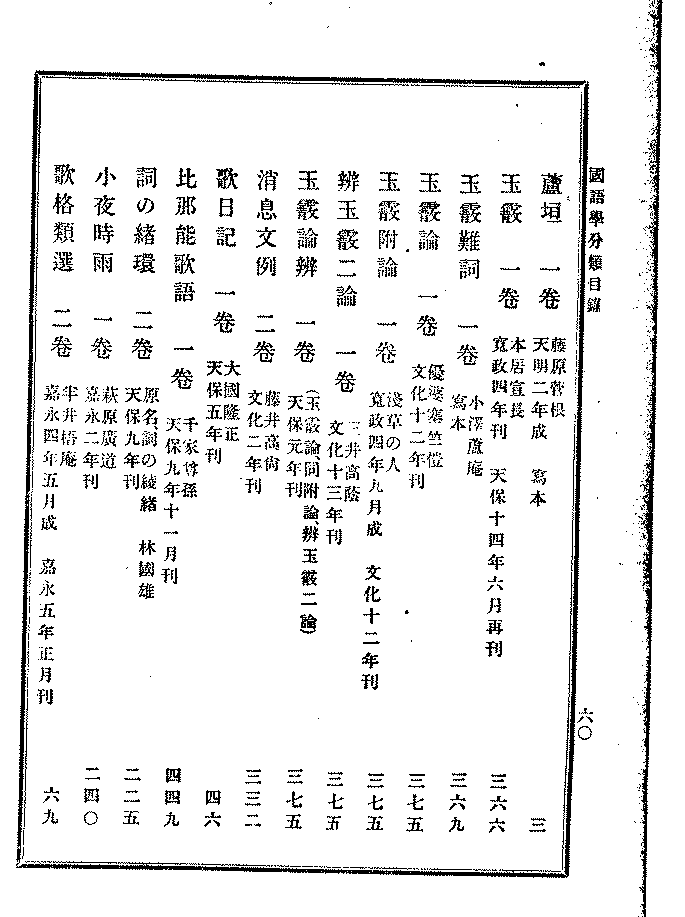 國語學分類目錄
六〇
蘆垣 一卷 藤原菅根 天明二年成 寫本 三
玉霰 一卷 本居宣長 寬政四年刊 天保十四年六月再刊 三六六
玉霰難詞 一卷 小澤蘆庵 寫本 三六九
玉霰論 一卷 優婆塞竺愷 文化十二年刊 三七五
玉霰附論 一卷 淺草の人 寬政四年九月成 文化十二年刊 三七五
辨玉霰二論 一卷 三井高蔭 文化十三年刊 三七五
玉霰論辨 一卷 (玉霰論、同附論、辨玉霰二論) 天保元年刊 三七五
消息文例 二卷 藤井高尙 文化二年刊 三三二
歌日記 一卷 大國隆正 天保五年刊 四六
比那能歌語 一卷 千家尊孫 天保九年十一月刊 四四九
詞の緖環 二卷 原名、詞の綾緖 林國雄 天保九年刊 二二五
小夜時雨 一卷 萩原廣道 嘉永二年刊 二四〇
歌格類選 二卷 半井梧庵 嘉永四年五月成 嘉永五年正月刊 六九